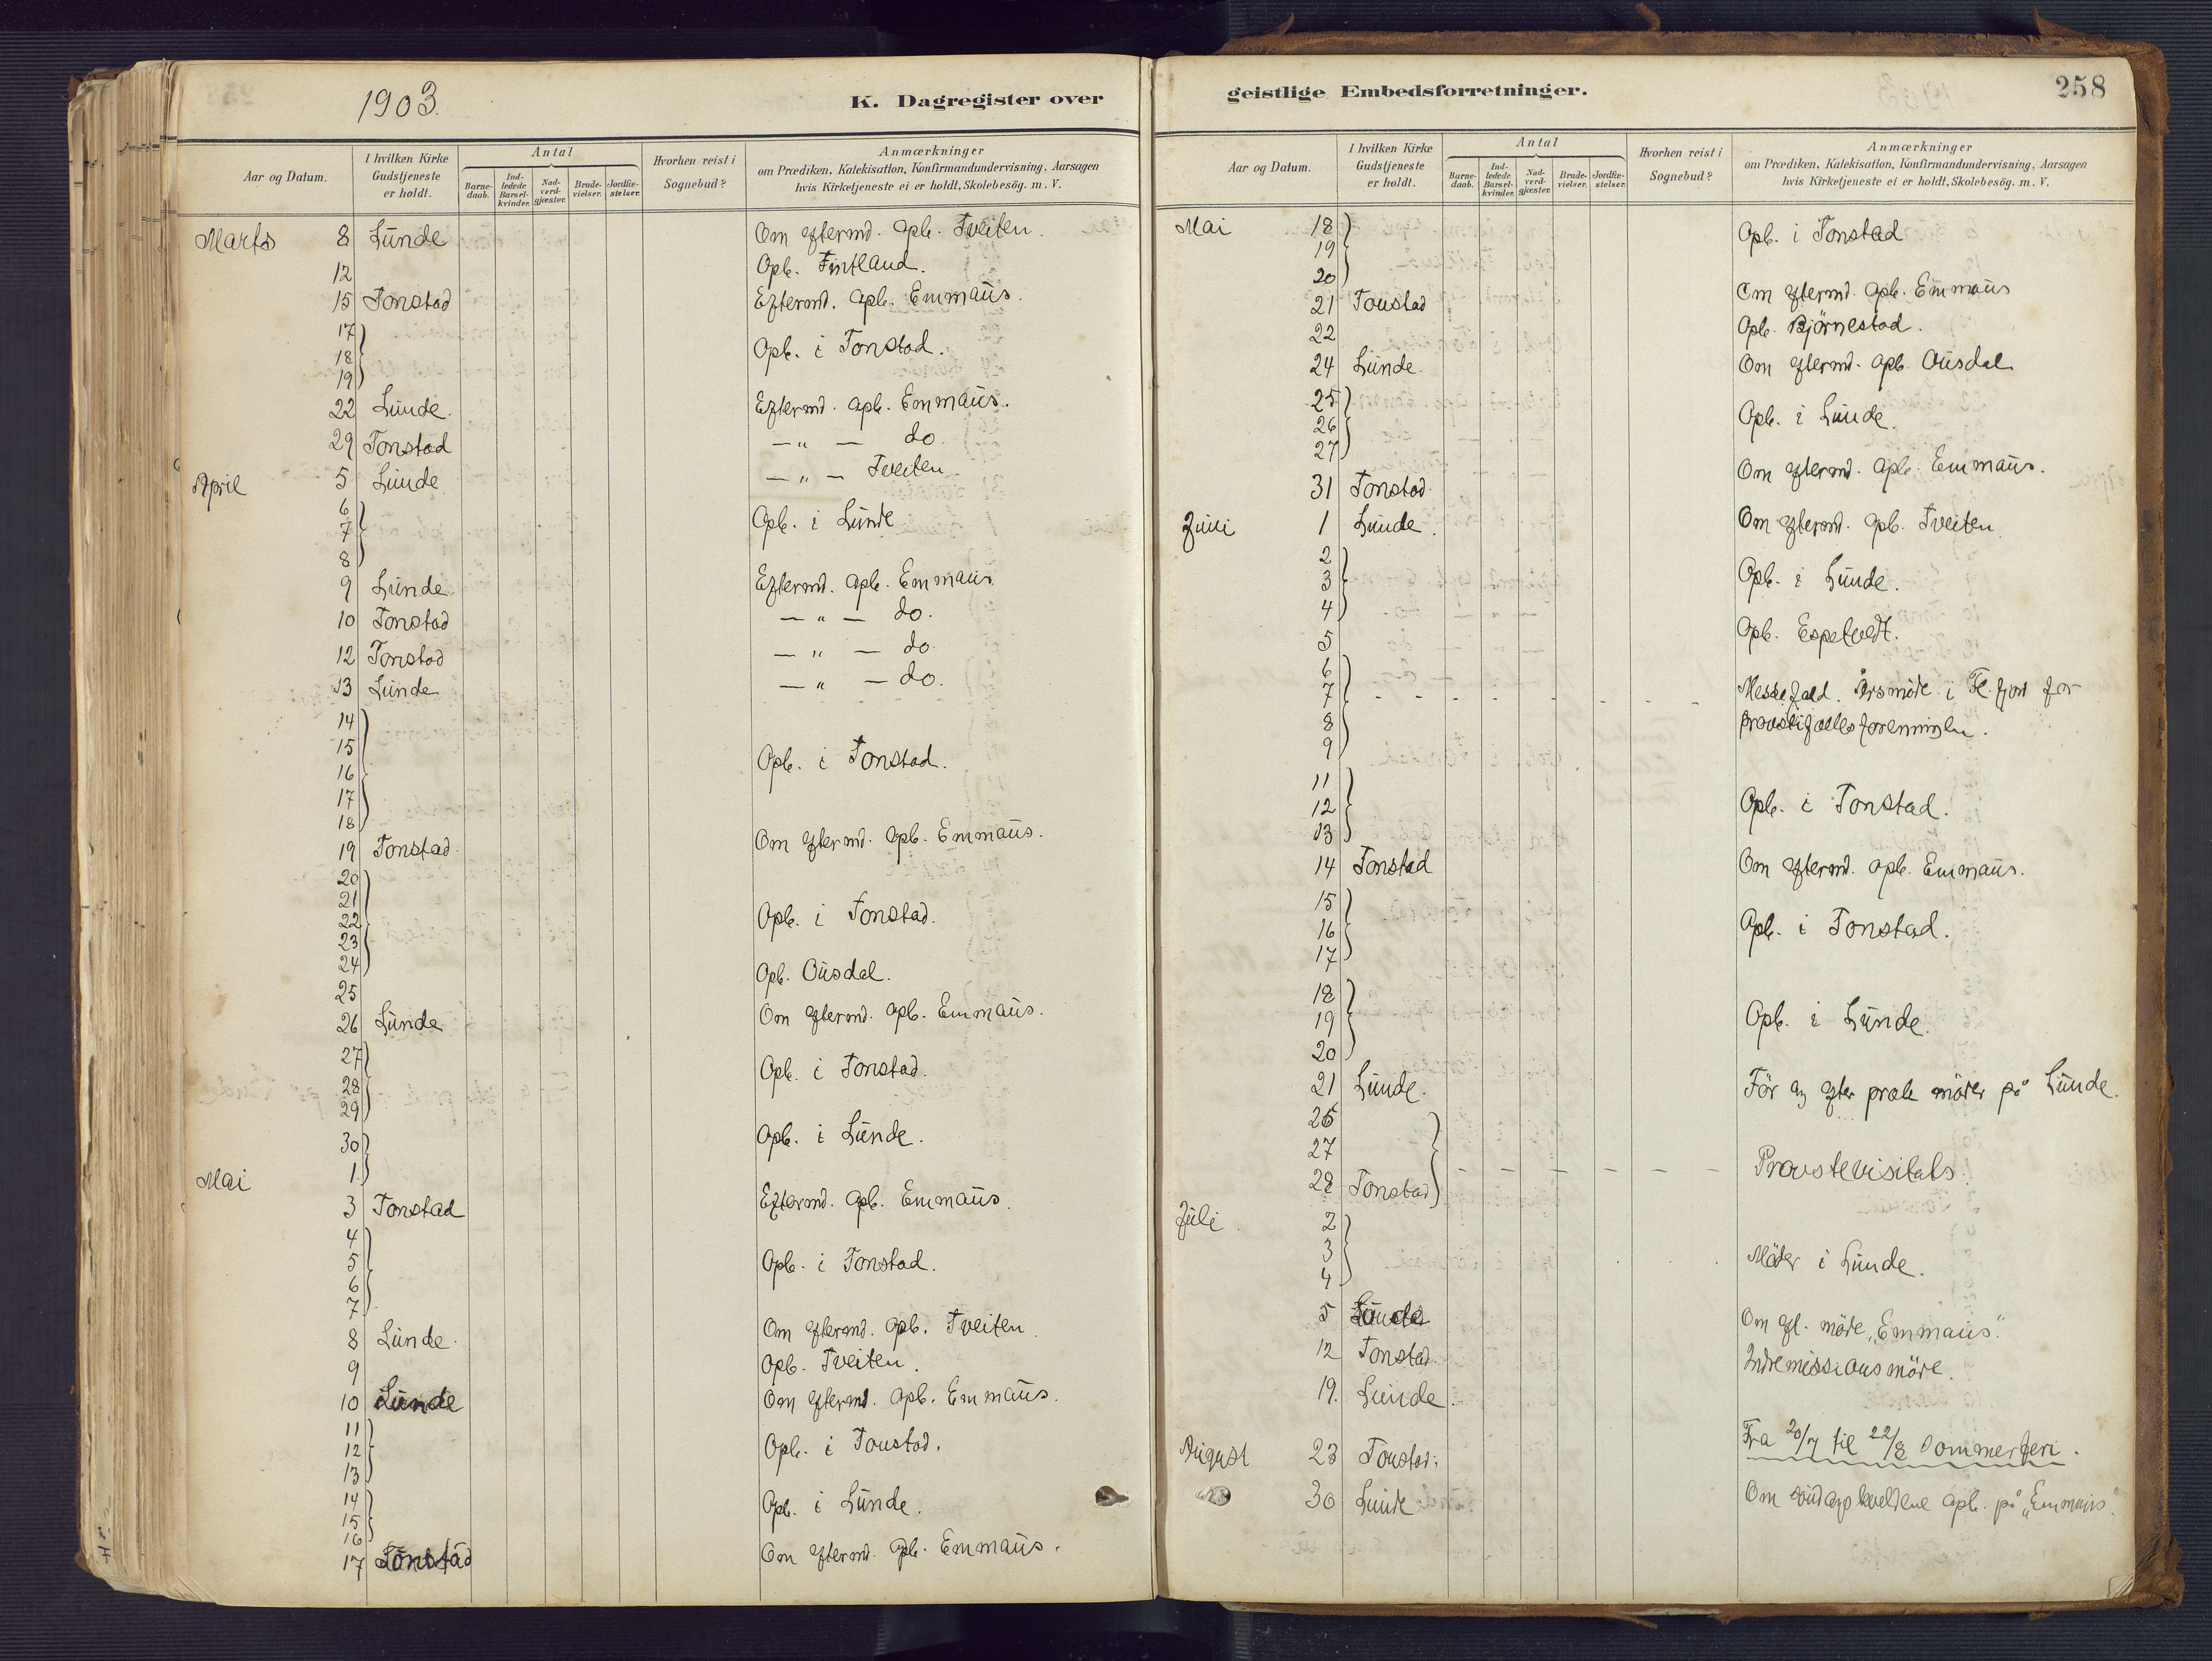 1903.
K. Dagregister over
Aar og Datum.
I hvilken Kirke Gudstjeneste er holdt.
Antal
Barnedaab.
Indledede Barselkvinder.
Nadverdgjæster.
Brudevielser.
Jordfæstelser.
Hvorhen reist i Sognebud?
Anmærkninger
om Prædiken, Katekisation, Konfirmandundervisning, Aarsagen
hvis Kirketjeneste ei er holdt, Skolebesög. m. V.
Marts 8 Lunde Om eftermd. opb. Tveiten.
12 Opb. Fintland.
15 Tonstad Eftermd. opb. Emmaus.
17
18 Opb. i Tonstad.
19
22 Lunde. Eftermd. opb. Emmaus.
29 Tonstad — " — do.
April 5 Lunde — " — Tveiten
6
7 Opb. i Lunde
8
9 Lunde Eftermd. opb. Emmaus
10 Tonstad — " — do.
12 Tonstad — " — do
13 Lunde — " — do.
14
15
16 Opb. i Tonstad.
17
18
19 Tonstad. Om eftermd. opb. Emmaus.
20
21
22 Opb. i Tonstad.
23
24
25 Opb. Ousdal.
26 Lunde Om eftermd. opb. Emmaus.
27
28 Opb. i Tonstad.
29
30 Opb. i Lunde.
Mai 1.
3 Tonstad Eftermd. opb. Emmaus.
4
5 Opb. i Tonstad.
6
7
8 Lunde. Om eftermd. opb. Tveiten.
9 Opb. Tveiten.
10 Lunde Om eftermd. opb. Emmaus.
11
12 Opb. i Tonstad.
13
14
15 Opb. i Lunde.
16
17 Tonstad Om eftermd. opb. Emmaus.
geistlige Embedsforretninger.
258
Aar og Datum.
I hvilken Kirke Gudstjeneste er holdt.
Antal
Barnedaab.
Indledede Barselkvinder.
Nadverdgjæster.
Brudevielser.
Jordfæstelser.
Hvorhen reist i Sognebud?
Anmærkninger
om Prædiken, Katekisation, Konfirmandundervisning, Aarsagen
hvis Kirketjeneste ei er holdt, Skolebesög. m. V.
Mai 18 Opb. i Tonstad
19
20
21 Tonstad Om eftermd. opb. Emmaus
22 Opb. Bjørnestad.
24 Lunde. Om eftermd. opb. Ousdal
25
26 Opb. i Lunde.
27
31 Tonstad. Om eftermd. opb. Emmaus.
Juni 1 Lunde. Om eftermd. opb. Tveiten
2
3 Opb. i Lunde.
4
5 Opb. Espetvedt.
6
7 Messefald. Årsmöde i Fl.fjord for
8 provstifællesforeningen.
9
11
12 Opb. i Tonstad.
13
14 Tonstad Om eftermd. opb. Emmaus.
15
16 Opb. i Tonstad.
17
18
19 Opb. i Lunde.
20
21 Lunde. För og efter præk möder på Lunde.
26
27
28 Tonstad Provstevisitats.
Juli 2
3 Möder i Lunde.
4
5 Lunde Om eft. möde „Emmaus."
12 Tonstad. Indremissionsmöde.
19. Lunde.
Fra 20/7 til 22/8 Sommerferi.
August 23 Tonstad.
30 Lunde Om söndagskveldene opb. på „Emmaus."